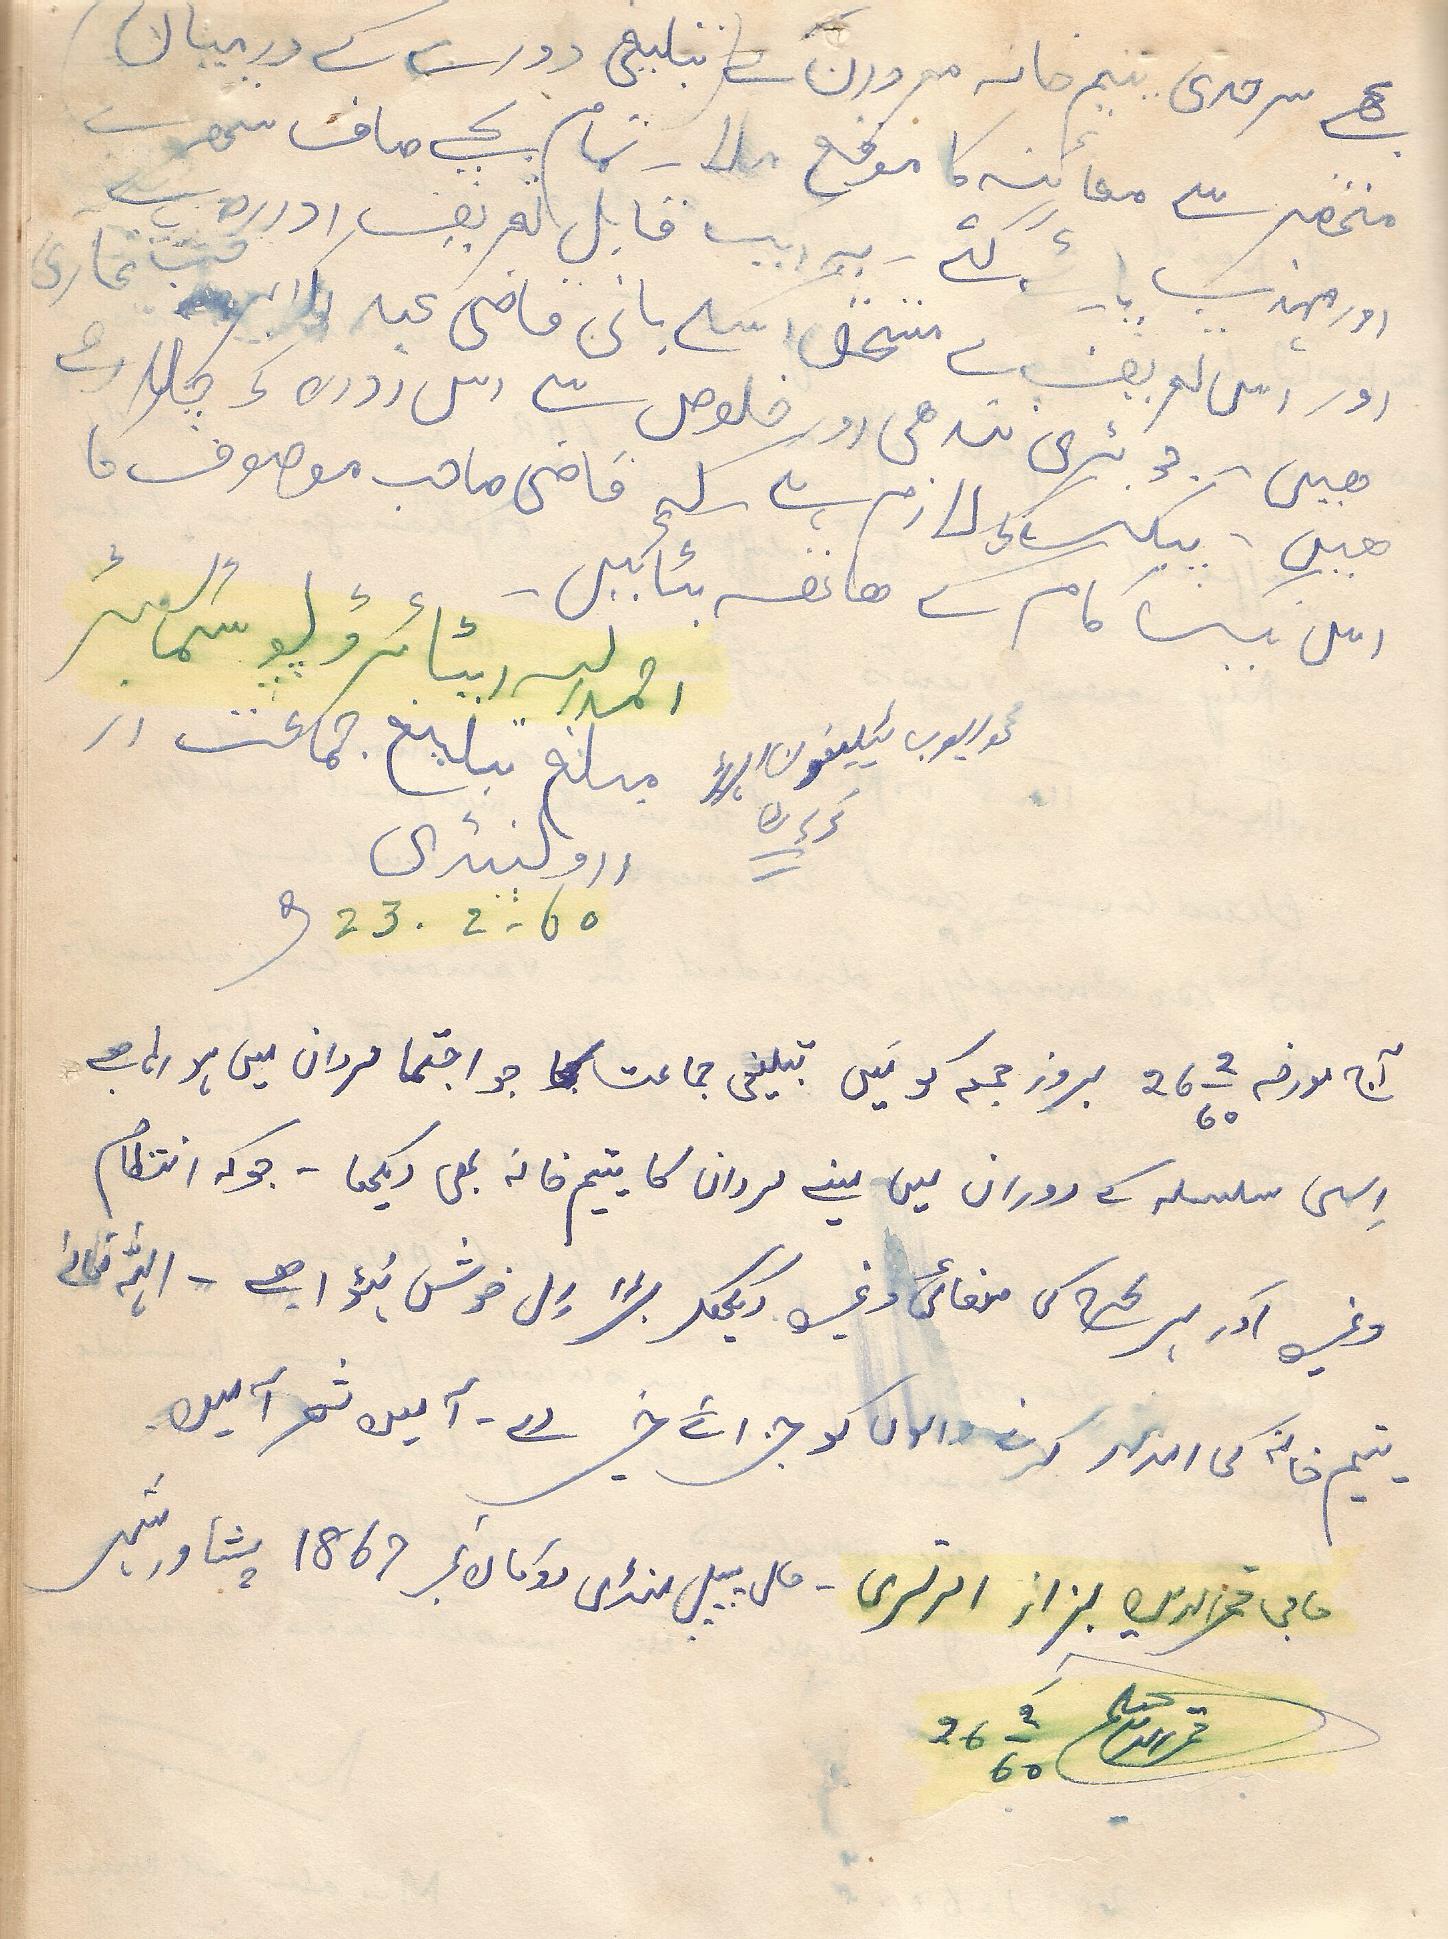 مجھے سرحدی یتیم خانہ مردان کے تبلیغی دورے کے درمیان
مختصر سے معائنہ کا موقع ملا۔ تمام بچے صاف ستھرے
اور مہذب پائے گئے۔ یہ ایک قابل تعریف ادارہ ہے
اور اس تعریف کے مستحق اسکے بانی قاضی عبد
ھیں۔ جو بڑی تندھی اور خلوص سے اس ادارہ کو چلا رہے
ھیں۔ پبلک کو لازم ہے کہ قاضی صاحب موصوف کا
اس نیک کام کے ھاتھ بٹائیں۔
احمد ریٹائرڈ پوسٹماسٹر
مبلغ تبلیغ جماعت از
محمد ایوب ٹیلیفون
راولپنڈی
23. 2-60
آج مورخہ 26 2/60 بروز جمعہ کو میں تبلیغی جماعت کا جو اجتما مردان میں ہو رہا ہے
اِسی سلسلہ کے دوران میں مینے مردان کا یتیم خانہ بھی دیکھا - جو کہ انتظام
وغیرہ اور ہر طرح کی صفائی وغیرہ دیکھکر بڑا دِل خوش ہُوا ہے - اللہ تعالےٰ
یتیم خانہ کی امداد کرنے والوں کو جزائے خیر دے - آمین ثم آمین
حاجی قمرالدین بزاز امرتسری - حال پیپل منڈی دوکان نمبر 1867 پشاور شہر
قمرالدین 26 2/60